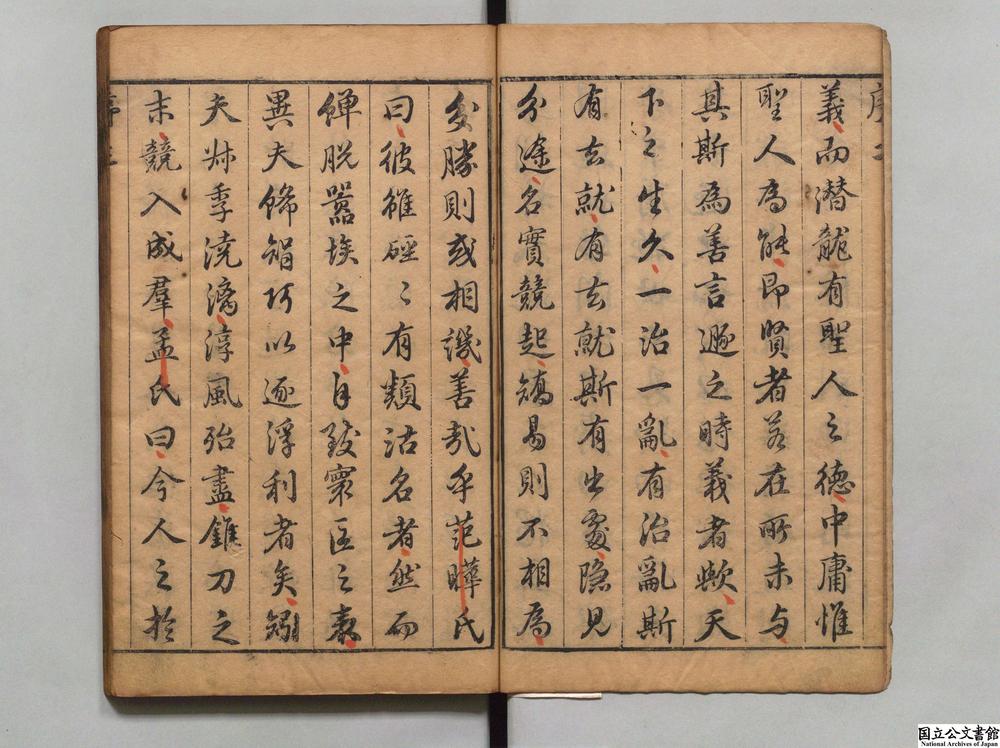 義而潜龍有聖人之德中庸惟
聖人為能即賢者若在所未与
其斯為善言遯之時義者歟天
下之生久一治一亂有治亂斯
有去就有去就斯有出處隐見
分途名實競起矯易則不相為
勝則或相譏善哉乎范曄氏
曰彼雖硜〻有類沽名者然而
蟬脱囂埃之中自致寰区之表
異夫飾智巧以逐浮利者矣矧
夫叔季澆漓淳風殆盡錐刀之
末競入成羣孟氏曰今人之於
国立公文書館
National Archives of Japan